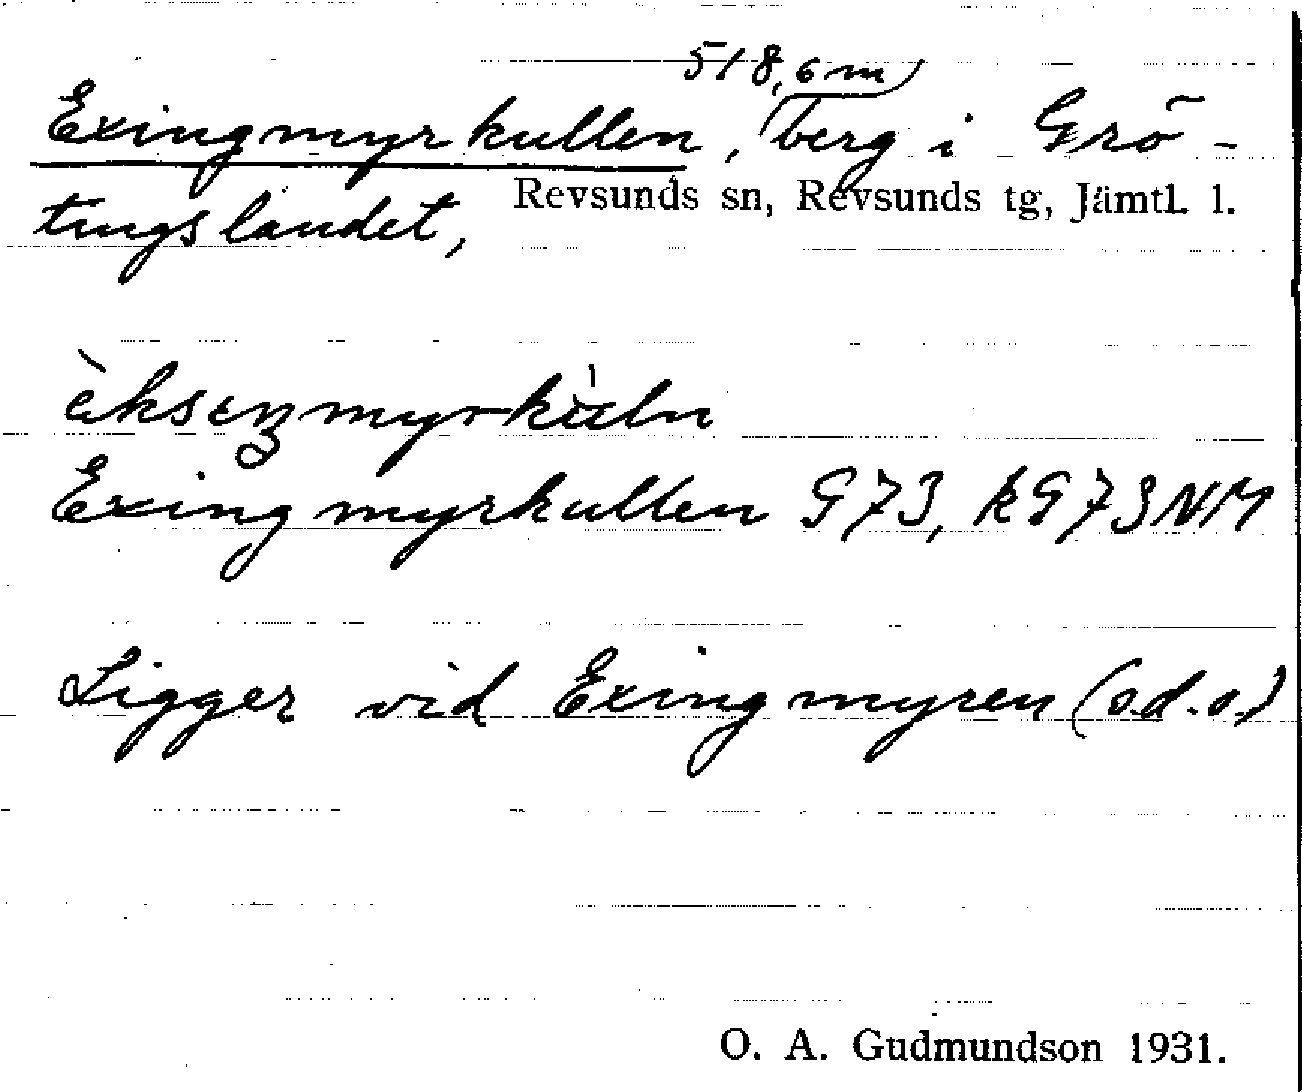 518,6 m
Exingmyrkullen, berg i Grö-
Revsunds sn, Revsunds tg, Jämtl. l.
tingslandet,
Exingmyrkullen G73, kG73NM
Ligger vid Exingmyren (o.d.o.)
O. A. Gudmundson 1931.